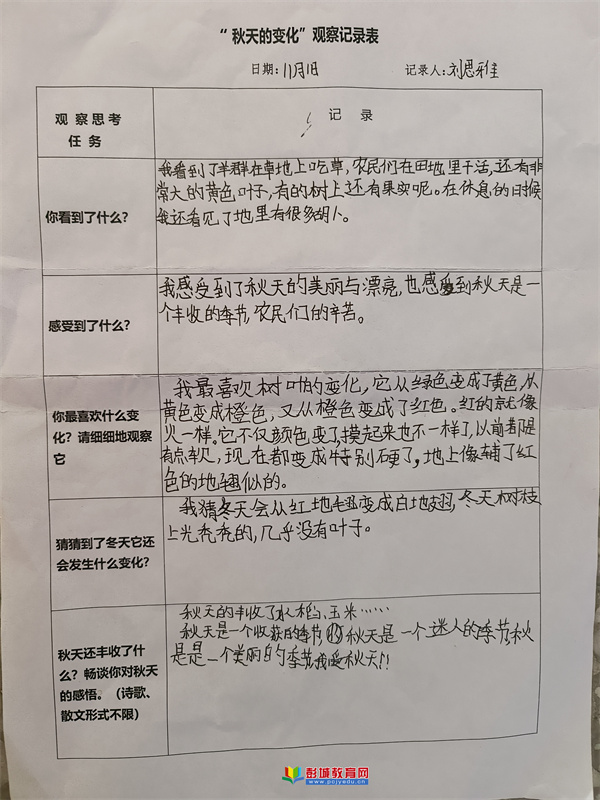 “秋天的变化”观察记录表
日期：11月1日 记录人：刘思雅
观察思考
任务
记录
你看到了什么？
我看到了羊群在草地上吃草，农民们在田地里干活，还有非
常大的黄色叶子，有的树上还有果实呢。在休息的日时候
我还看见了地里有很多胡卜。
感受到了什么？
我感受到了秋天的美丽与漂亮，也感受到秋天是一
个丰收的季节，农民们的辛苦。
你最喜欢什么变
化？请细细地观察
它
我最喜欢树叶的变化，它从绿色变成了黄色，从
黄色变成橙色，又从橙色变成了红色。红的就像
火一样。它不仅颜色变了摸起来也不一样了，以前都是
有点软，现在都变成特别硬了，地上像铺了红
色的地毯似的。
猜猜到了冬天它还
会发生什么变化？
我猜冬天会从红地毯变成白地毯，冬天树枝
上光秃秃的，几乎没有叶子。
秋天还丰收了什
么？畅谈你对秋天
的感悟。（诗歌、
散文形式不限）
秋天的丰收了水稻、玉米……
秋天是一个收获的季节 秋天是一个迷人的季节秋
是是一个美丽的季节我爱秋天！！
彭城教育网
www.pcjyedu.cn